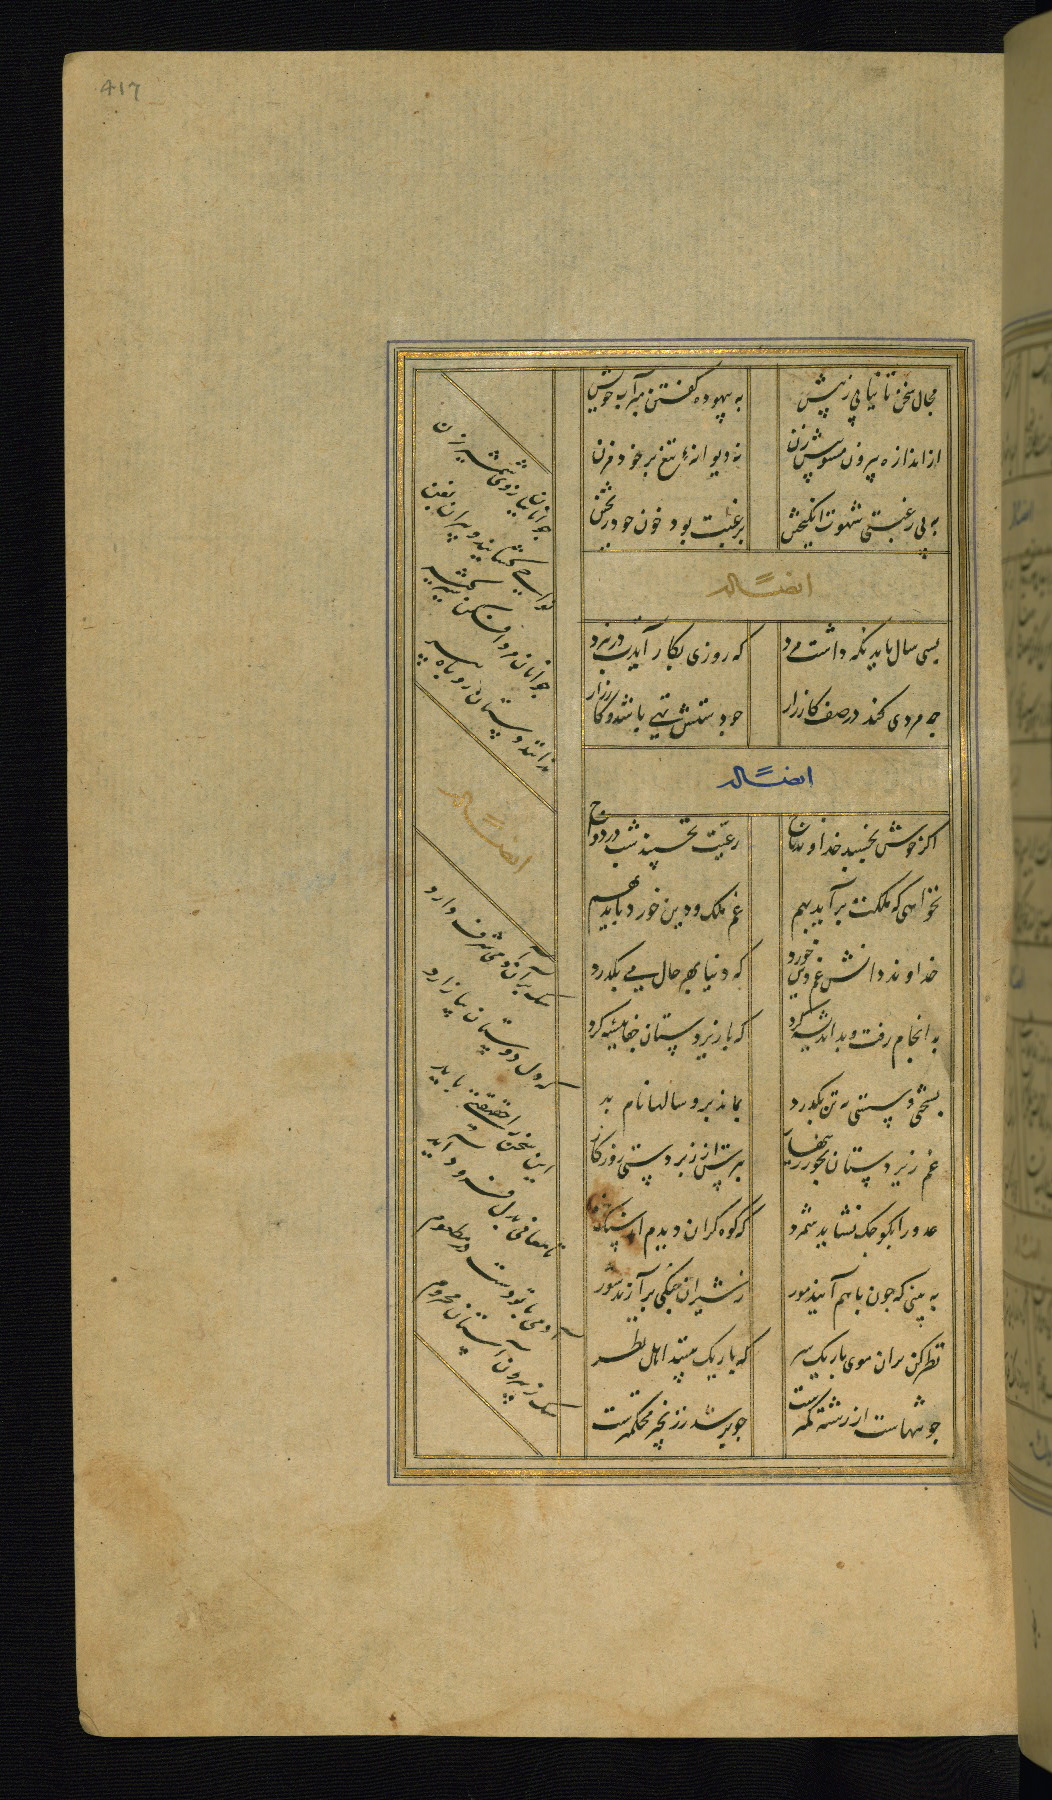 417
مجال سخن تا نیابی ز پیش
به بیهوده گفتن مبر آب خویش
از اندازه بیرون مشو پیش زن
نه دیوانهٔ تیغ بر خود مزن
به بی رغبتی شهوت انگیختن
برغبت بود خون خود ریختن
ایضاً له
بسی سال باید نگه داشت مرد
که روزی بکار آیدت در نبرد
چه مردی کند در صف کارزار
چو دستش تهی باشد و کار زار
ایضاً له
اگر خوش بخسبد خداوند
رعیت نخسپند شب در دواج
نخواهی که ملکت برآید بهم
غم ملک و دین خورد باید بهم
خداوند دانش غم دین خورد
که دنیا بهر حال می بگذرد
به انجام رفت و بد اندیشه کرد
که با زیردستان جفا پیشه کرد
بسختی و سستی به تن بگذرد
بماند برو سالها نام بد
غم زیردستان بخور زینهار
بترس از زبردستی روزگار
عدو را بکوچک نشاید شمرد
که کوه گران دیدم از سنگ
به بینی که چون باهم آیند مور
ز شیران جنگی برآرند شور
نظر کن بران موی باریک سر
که باریک بینند اهل نظر
چو تنهاست از رشتهٔ کمترست
چو پر شد ز زنجیر محکمترست
جوانان بیازوی شمشیر زن
جوانان مرد افکن شیر
ندانند دستان روباه پیر
ایضاً له
سگ بر آن آدمی شرف دارد
که دل دوستان بیازارد
این سخن را حقیقتی باید
تا معانی بدل فرود آید
آدمی با تو دست در مطعوم
سگ ز بیرون آستان محروم